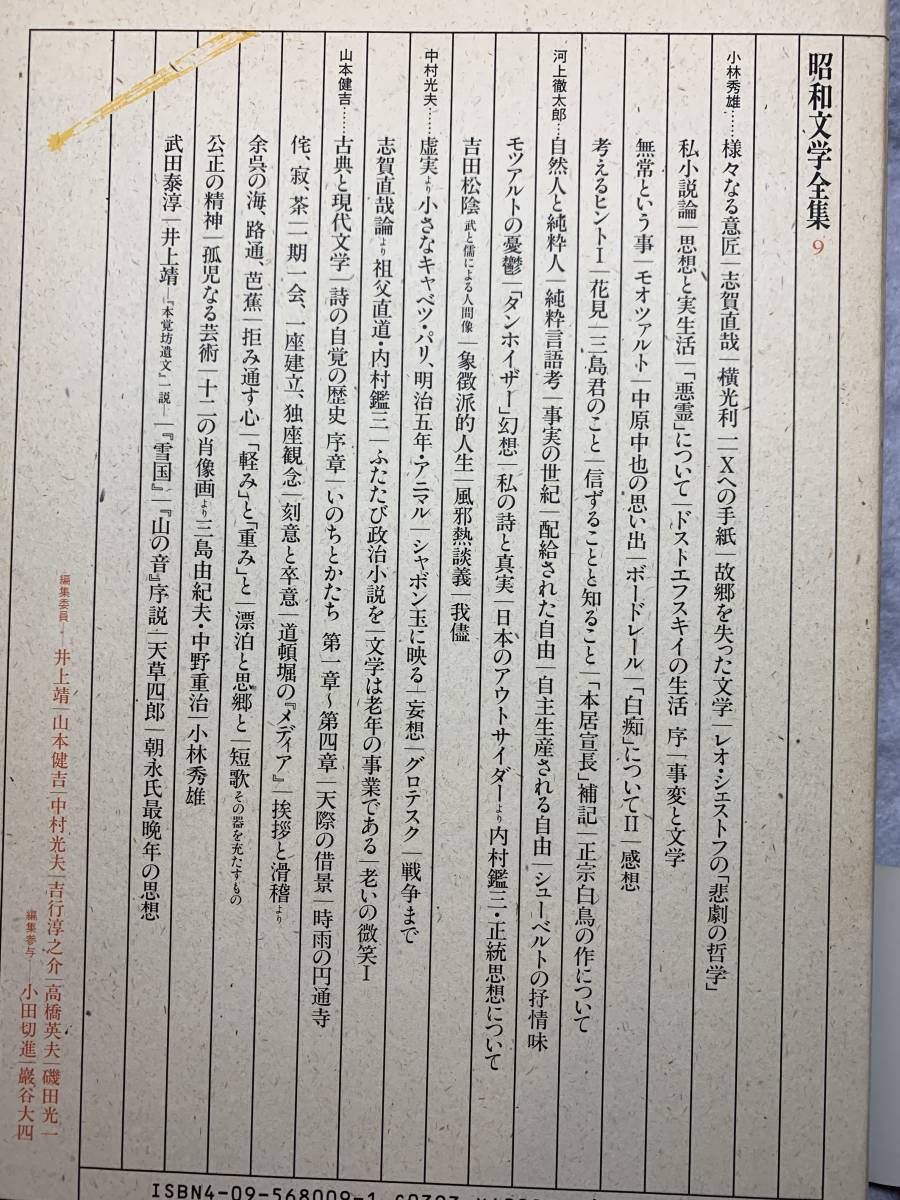 昭和文学全集 9
小林秀雄……様々なる意匠｜志賀直哉｜横光利一｜Xへの手紙｜故郷を失った文学｜レオ・シェストフの「悲劇の哲学」
私小説論｜思想と実生活｜「悪霊」について｜ドストエフスキイの生活 序｜事変と文学
無常という事｜モオツァルト｜中原中也の思い出｜ボードレール｜「白痴」についてⅡ｜感想
考えるヒントⅠ｜花見｜三島君のこと｜信ずることと知ること｜「本居宣長」補記｜正宗白鳥の作について
河上徹太郎…自然人と純粋人｜純粋言語考｜事実の世紀｜配給された自由｜自主生産される自由｜シューベルトの抒情味
モツアルトの憂鬱｜「タンホイザー」幻想｜私の詩と真実｜日本のアウトサイダーより 内村鑑三・正統思想について
吉田松陰 武と儒による人間像｜象徴派的人生｜風邪熱談義｜我儘
中村光夫……虚実より 小さなキャベツ・パリ、明治五年・アニマル｜シャボン玉に映る｜妄想｜グロテスク｜戦争まで
志賀直哉論より 祖父直道・内村鑑三｜ふたたび政治小説を｜文学は老年の事業である｜老いの微笑Ⅰ
山本健吉……古典と現代文学｜詩の自覚の歴史 序章｜いのちとかたち 第一章～第四章｜天際の借景｜時雨の円通寺
侘、寂、茶｜一期一会、一座建立、独座観念｜刻意と卒意｜道頓堀の『メディア』｜挨拶と滑稽より
余呉の海、路通、芭蕉｜拒み通す心｜「軽み」と「重み」と｜漂泊と思郷と｜短歌 その器を充たすもの
公正の精神｜孤児なる芸術｜十二の肖像画より 三島由紀夫・中野重治｜小林秀雄
武田泰淳｜井上靖―『本覚坊遺文』一説―｜『雪国』｜『山の音』序説｜天草四郎｜朝永氏最晩年の思想
編集委員― 井上靖｜山本健吉｜中村光夫｜吉行淳之介｜高橋英夫｜磯田光一
編集参与― 小田切進｜巖谷大四
ISBN4-09-568009-1